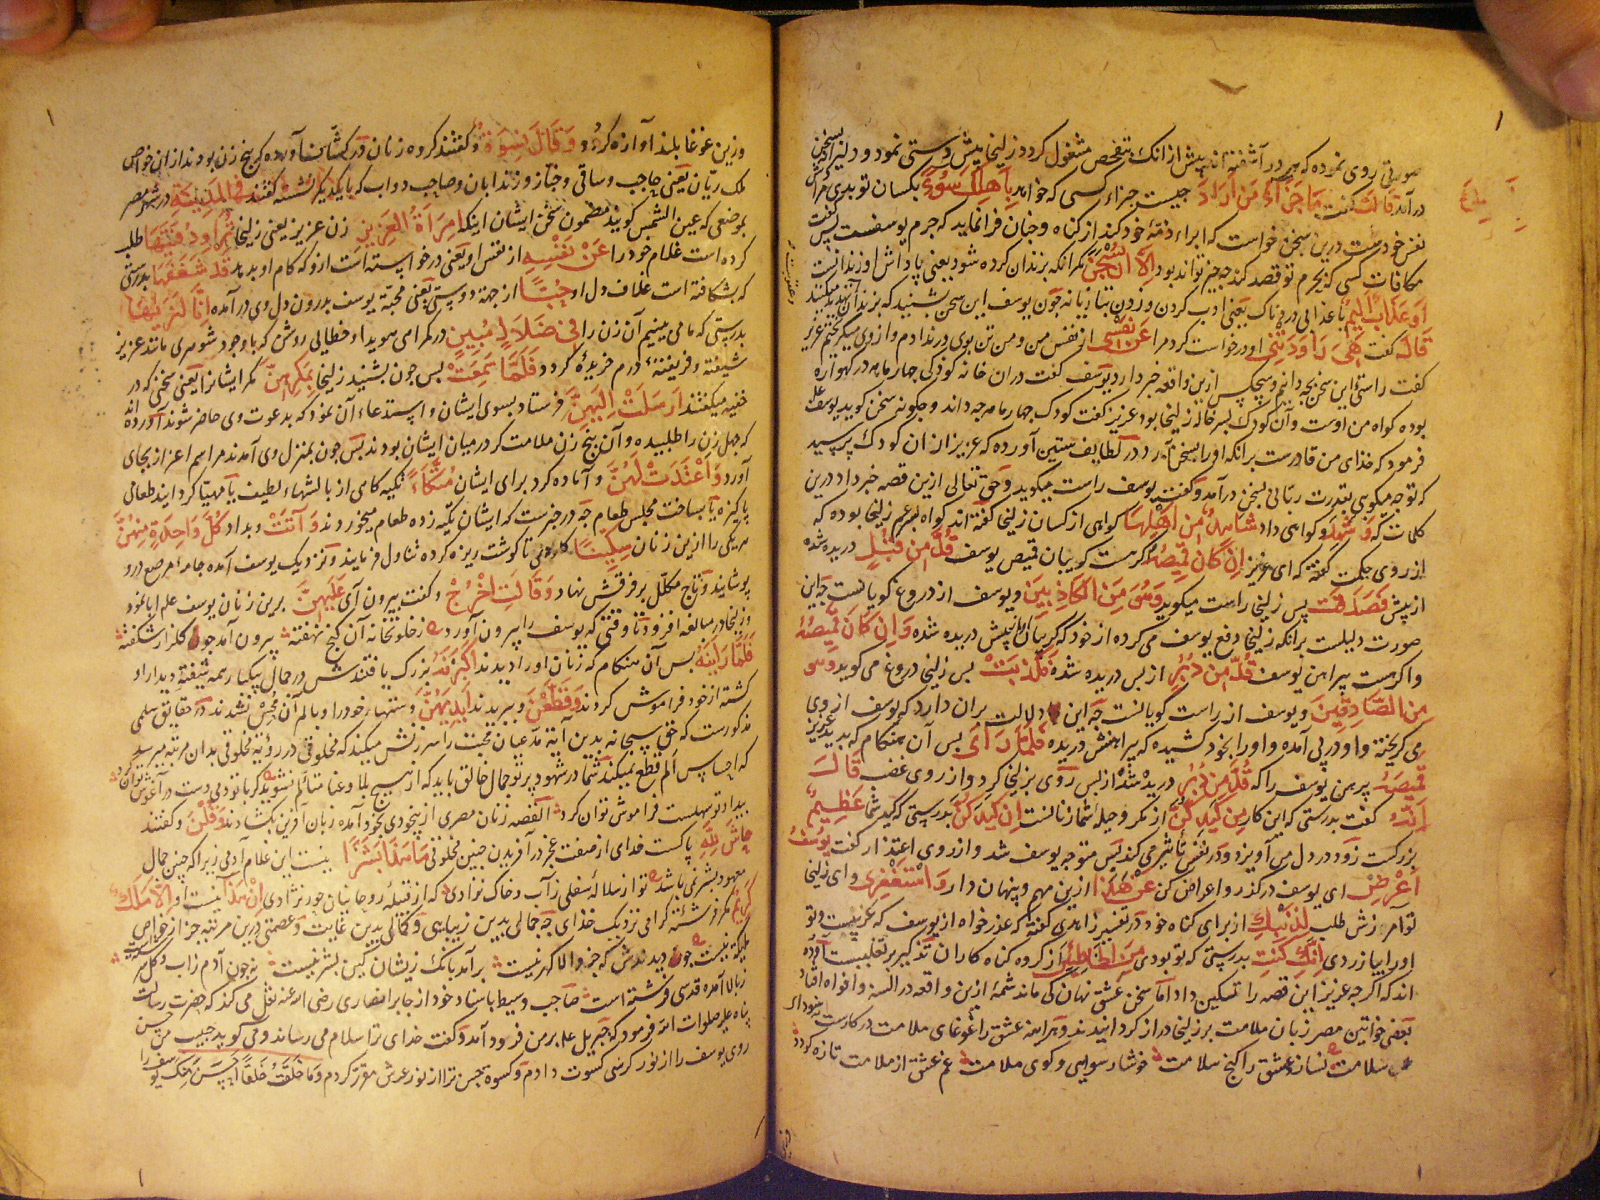 صورتی روی نموده که همه در آشفته‌اند پیش از آنک بتفحص مشغول گردد زلیخا پیش دستی نمود و دلیر بسخن
درآمد قَالَتْ گفت مَا جَزَاءُ مَنْ أَرَادَ چیست جزاء کسی که خواهد بِأَهْلِكَ سُوءًا بکسان تو بدی مراد
نفس خودست درین سخن خواست که ابراء ذمهٔ خود کند از گناه و چنان فرا نماید که جرم یوسفست پس گفت
مکافات کسی که بحرم تو قصد کند چه چیز تواند بود إِلَّا أَنْ يُسْجَنَ مگر انکه بزندان کرده شود یعنی پاداش او زندانست
أَوْ عَذَابٌ أَلِيمٌ یا عذابی دردناک یعنی ادب کردن و زدن بتازیانه چون یوسف این سخن بشنید که بزندان تهدید میکنند
قَالَ گفت هِيَ رَاوَدَتْنِي او درخواست کرد مرا عَنْ نَفْسِي از نفس من و من تن بوی در ندادم و از وی میگریختم عزیز
گفت راستی این سخن بچه دانم و هیچکس ازین واقعه خبر دارد یوسف گفت دران خانه کودکی چهار ماهه در گهواره
بوده گواه من اوست وآن کودک پسر خاله زلیخا بود عزیز گفت کودک چهار ماهه چه داند و چگونه سخن گوید یوسف
فرمود که خدای من قادرست برانکه او را بسخن آرد در لطایف ستین آورده که عزیز ازان کودک پرسید
که تو چه میگویی بقدرت ربانی بسخن درآمد و گفت یوسف راست میگوید و حق تعالی ازین قصه خبر داد درین
کلمات که وَشَهِدَ و گواهی داد شَاهِدٌ مِنْ أَهْلِهَا گواهی از کسان زلیخا گفته‌اند گواه پسر عم زلیخا بوده که
از روی حکمت گفته که ای عزیز إِنْ كَانَ قَمِيصُهُ اگر هست گریبان قمیص یوسف قُدَّ مِنْ قُبُلٍ دریده شده
از پیش فَصَدَقَتْ پس زلیخا راست میگوید وَهُوَ مِنَ الْكَاذِبِينَ و یوسف از دروغ گویانست چه این
صورت دلیلست برانکه زلیخا دفع یوسف می کرده از خود که گریبان او از پیش دریده شده وَإِنْ كَانَ قَمِيصُهُ
و اگر هست پیراهن یوسف قُدَّ مِنْ دُبُرٍ از پس دریده شده فَكَذَبَتْ پس زلیخا دروغ می گوید وَهُوَ
مِنَ الصَّادِقِينَ و یوسف از راست گویانست چه این دلالت بران دارد که یوسف از وی
می گریخته و او در پی آمده و او را بخود کشیده که پیراهنش دریده فَلَمَّا رَأَى پس آن هنگام که بدید عزیز
قَمِيصَهُ پیرهن یوسف را که قُدَّ مِنْ دُبُرٍ دریده شده از پس روی بزلیخا کرد و از روی غضب قَالَ
إِنَّهُ گفت بدرستی که این کار مِنْ كَيْدِكُنَّ از مکر و حیلهٔ شما زنانست إِنَّ كَيْدَكُنَّ بدرستی که کید شما عَظِيمٌ
بزرگست زود در دل می آویزد و در نفس تاثیر می کند پس متوجه یوسف شد و از روی اعتذار گفت يُوسُفُ
أَعْرِضْ ای یوسف درگذر و اعراض کن عَنْ هَذَا ازین مهم و پنهان دار وَاسْتَغْفِرِي و ای زلیخا
تو آمرزش طلب لِذَنْبِكِ از برای گناه خود در تفسیر زاهدی گفته که عذر خواه از یوسف که عزیزست و تو
او را بیازردی إِنَّكِ كُنْتِ بدرستی که تو بودی مِنَ الْخَاطِئِينَ از گروه گناه کاران تذکیر بر تغلیبست آورده
اند که اگرچه عزیز این قصه را تسکین داد اما سخن عشق نهان کی ماند شمهٔ ازین واقعه در السنه و افواه افتاد
بعضی خواتین مصر زبان ملامت بر زلیخا دراز گردانیدند و هر آینه عشق را غوغای ملامت درکارست
سلامت نسازد عشق را کنج سلامت خوشا رسوایی و کوی ملامت غم عشق از ملامت تازه گردد
وزین غوغا بلند آوازه گردد وَقَالَ نِسْوَةٌ و گفتند گروه زنان در کشاف آورده که پنج زن بودند از خواص
ملک ریان یعنی حاجب و ساقی و خباز و زندانبان و صاحب دواب که با یکدیگر نشسته گفتند فِي الْمَدِينَةِ در شهر مصر
بموضعی که عین الشمس گویند مضمون سخن ایشان اینکه امْرَأَةُ الْعَزِيزِ زن عزیز یعنی زلیخا تُرَاوِدُ فَتَاهَا طلب
کرده است غلام خود را عَنْ نَفْسِهِ از نفس او یعنی درخواسته است ازو که کام او بدهد قَدْ شَغَفَهَا بدرستی
که شکافته است غلاف دل او حُبًّا از جهة دوستی یعنی محبة یوسف بدرون دل وی درآمده إِنَّا لَنَرَاهَا
بدرستی که ما می بینیم آن زن را فِي ضَلَالٍ مُبِينٍ در گمراهی هویدا و خطایی روشن که با وجود شوهری مانند عزیز
شیفته و فریفتهٔ درم خریدهٔ گردد فَلَمَّا سَمِعَتْ پس چون بشنید زلیخا بِمَكْرِهِنَّ مکر ایشانرا یعنی سخنی که در
خفیه میگفتند أَرْسَلَتْ إِلَيْهِنَّ فرستاد بسوی ایشان و استدعاء آن نمود که بدعوت وی حاضر شوند آورده اند
که چهل زن را طلبیده و آن پنج زن ملامت گر درمیان ایشان بودند پس چون بمنزل وی آمدند مراسم اعزاز بجای
آورد وَأَعْتَدَتْ لَهُنَّ و آماده کرد برای ایشان مُتَّكَأً تکیه گاهی از بالشهاء لطیف یا مهیا گردانید طعامی
پاکیزه یا بساخت مجلس طعام چه در خبرست که ایشان تکیه زده طعام میخوردند وَآتَتْ و بداد كُلَّ وَاحِدَةٍ مِنْهُنَّ
هر یکی را ازین زنان سِكِّينًا کاردی تا گوشت ریزه کرده تناول فرمایند و نزدیک یوسف آمده جامهٔ مرصع درو
پوشانید و تاج مکلل بر فرقش نهاد وَقَالَتِ اخْرُجْ و گفت بیرون آی عَلَيْهِنَّ برین زنان یوسف علم ابا نمود
و زلیخا در مبالغه افزود تا وقتی که یوسف را بیرون آورد ز خلوتخانه آن گنج نهفته بیرون آمد چو گلزار شکفته
فَلَمَّا رَأَيْنَهُ پس آن هنگام که زنان او را دیدند أَكْبَرْنَهُ بزرگ یافتندش در جمال بیکبار همه شیفته دیدار او
گشته از خود فراموش کردند وَقَطَّعْنَ و ببریدند أَيْدِيَهُنَّ دستهاء خود را و بالم آن محس نشدند در حقایق سلمی
مذکورست که حق سبحانه بدین آیة مدعیان محبت را سرزنش میکند که مخلوقی در رؤیة مخلوقی بدان مرتبه میرسد
که احساس الم قطع نمیکند شما در شهود پرتو جمال خالق باید که از هیچ بلا و عنا متالم نشوید گر با تو دمی دست در آغوش توان کرد
بیداد تو سهلست فراموش توان کرد القصه زنان مصری از بیخودی بخود آمده زبان آفرین بکشادند وَقُلْنَ و گفتند
حَاشَ لِلَّهِ پاکست خدای از صفت عجز در آفریدن چنین مخلوقی مَا هَذَا بَشَرًا نیست این غلام آدمی زیرا که چنین جمال
معهود بشر نمی باشد تو از سلالهٔ سفلی ز آب و خاک نزادی که از قبیلهٔ روحانیان حور نژادی إِنْ هَذَا نیست او إِلَّا مَلَكٌ
كَرِيمٌ مگر فرشتهٔ گرامی نزدیک خدای چه جمالی بدین زیبایی و کمالی بدین غایت و عصمتی درین مرتبه جز از خواص
ملکیه نیست چو دیدندش که جز والا گهر نیست برآمد بانک زیشان کین بشر نیست نه چون آدم ز آب و گل سرشتست
ز بالا آمده قدسی فرشته است صاحب وسیط باسناد خود از جابر انصاری رضی الله عنه نقل می کند که حضرت رسالت
پناه علیه صلوات الله فرمود که جبریل علم بر من فرود آمد و گفت خدای ترا سلام می رساند و می گوید حبیب من
روی یوسف را از نور کرسی کسوت دادم و کسوه حسن ترا از نور عرش مقرر کردم وَمَا خَلَقْتُ خَلْقًا أَحْسَنَ مِنْكَ یوسف را